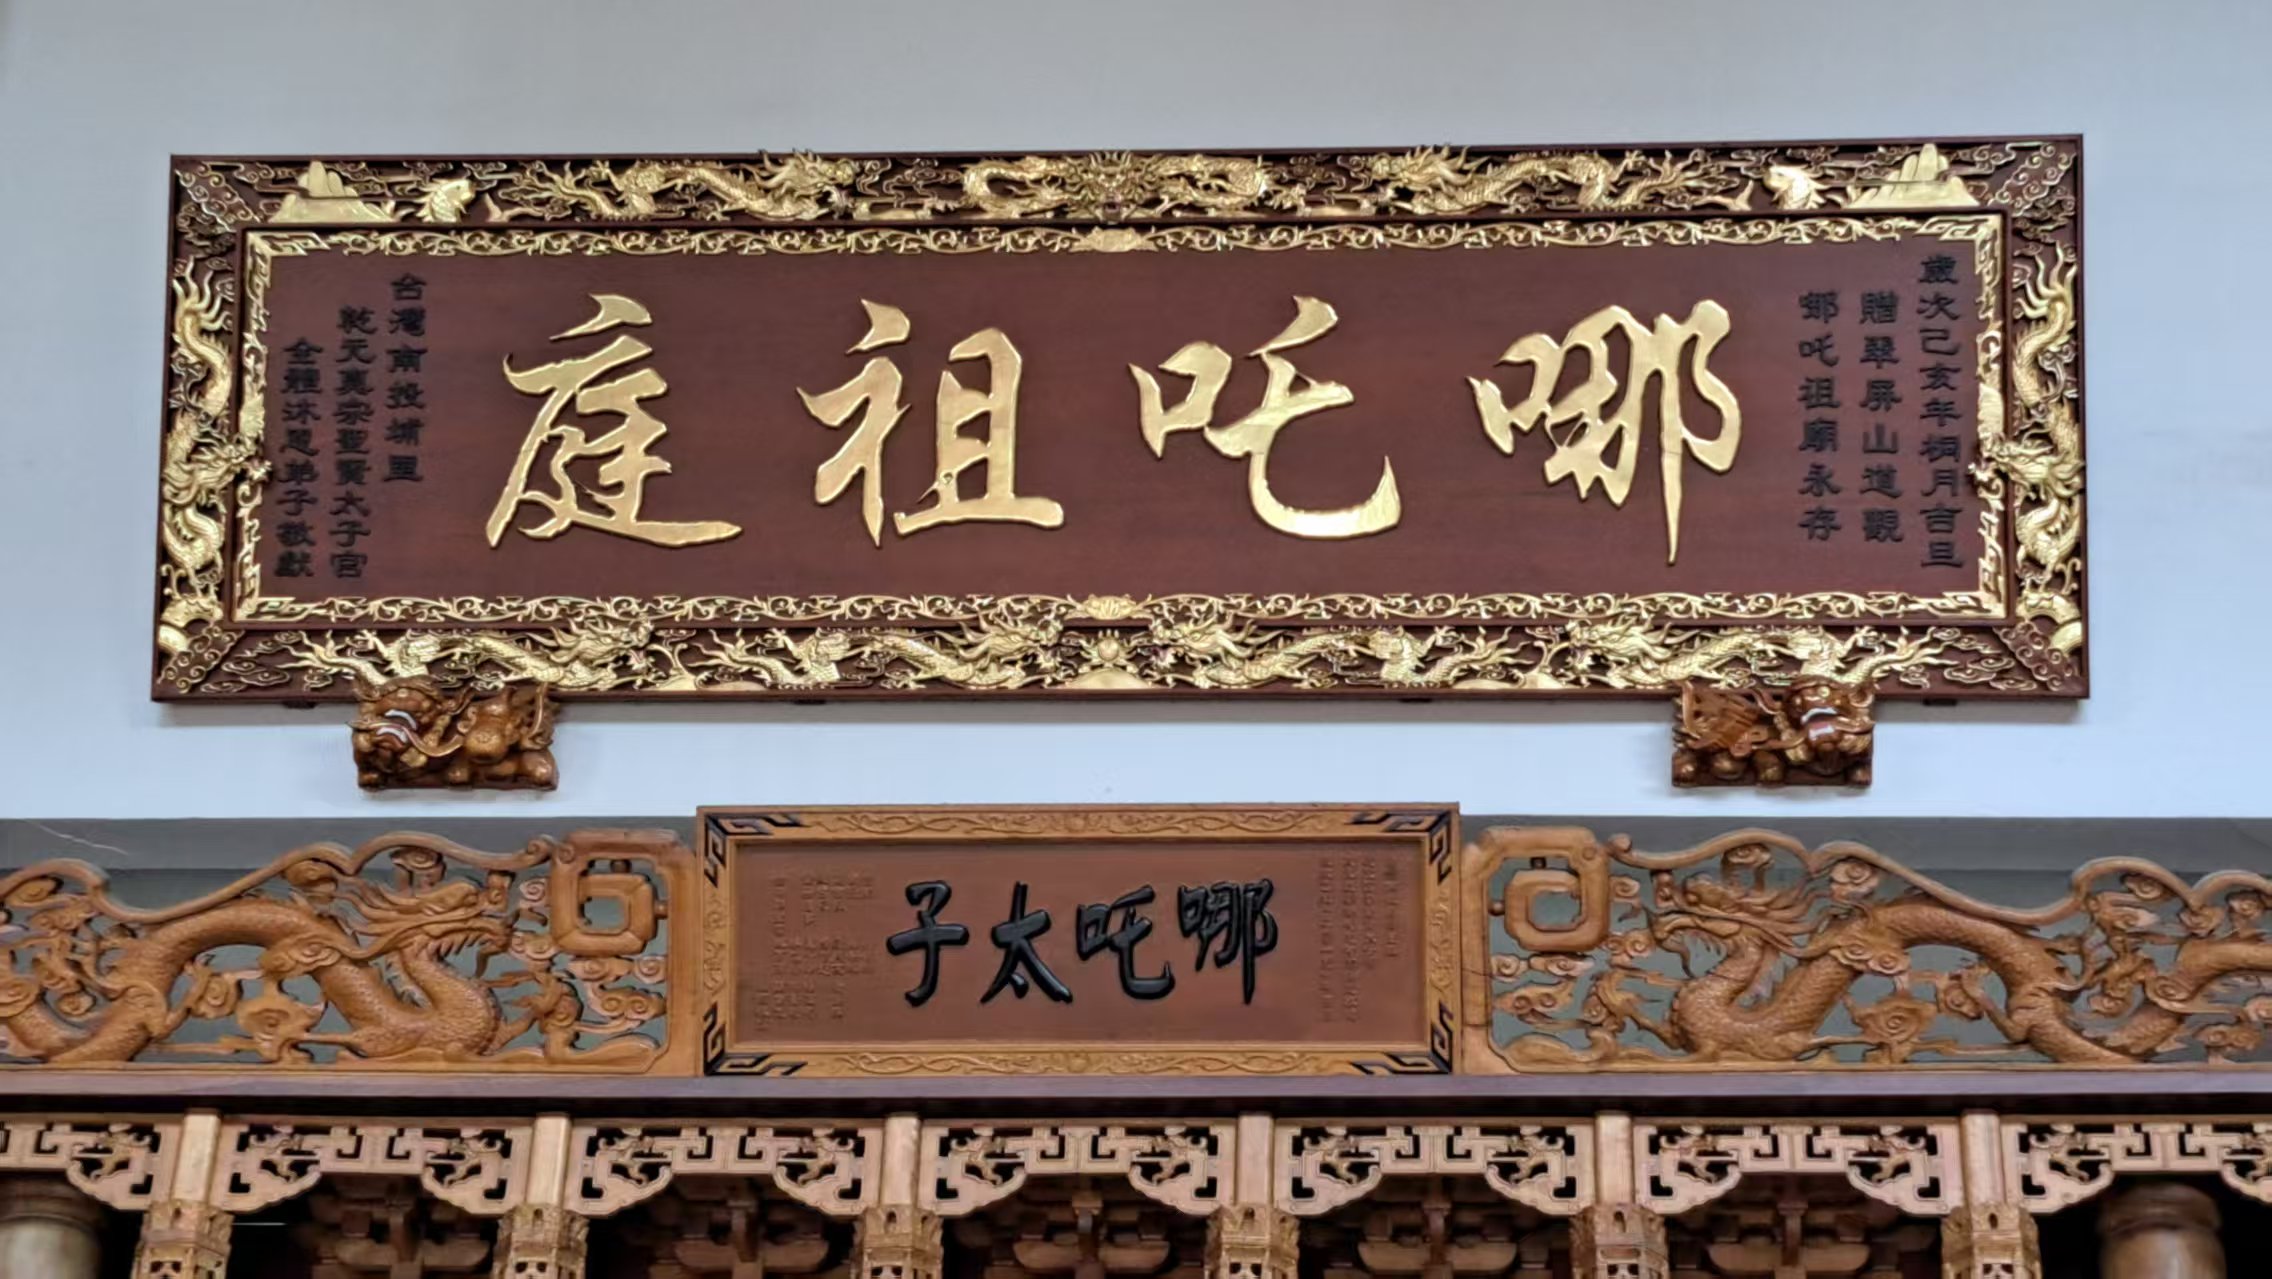 哪吒祖庭
歲次己亥年桐月吉旦
贈翠屏山道觀
哪吒祖廟永存
台灣南投埔里
乾元真宗聖賢太子宮
全體沐恩弟子敬獻
哪吒太子